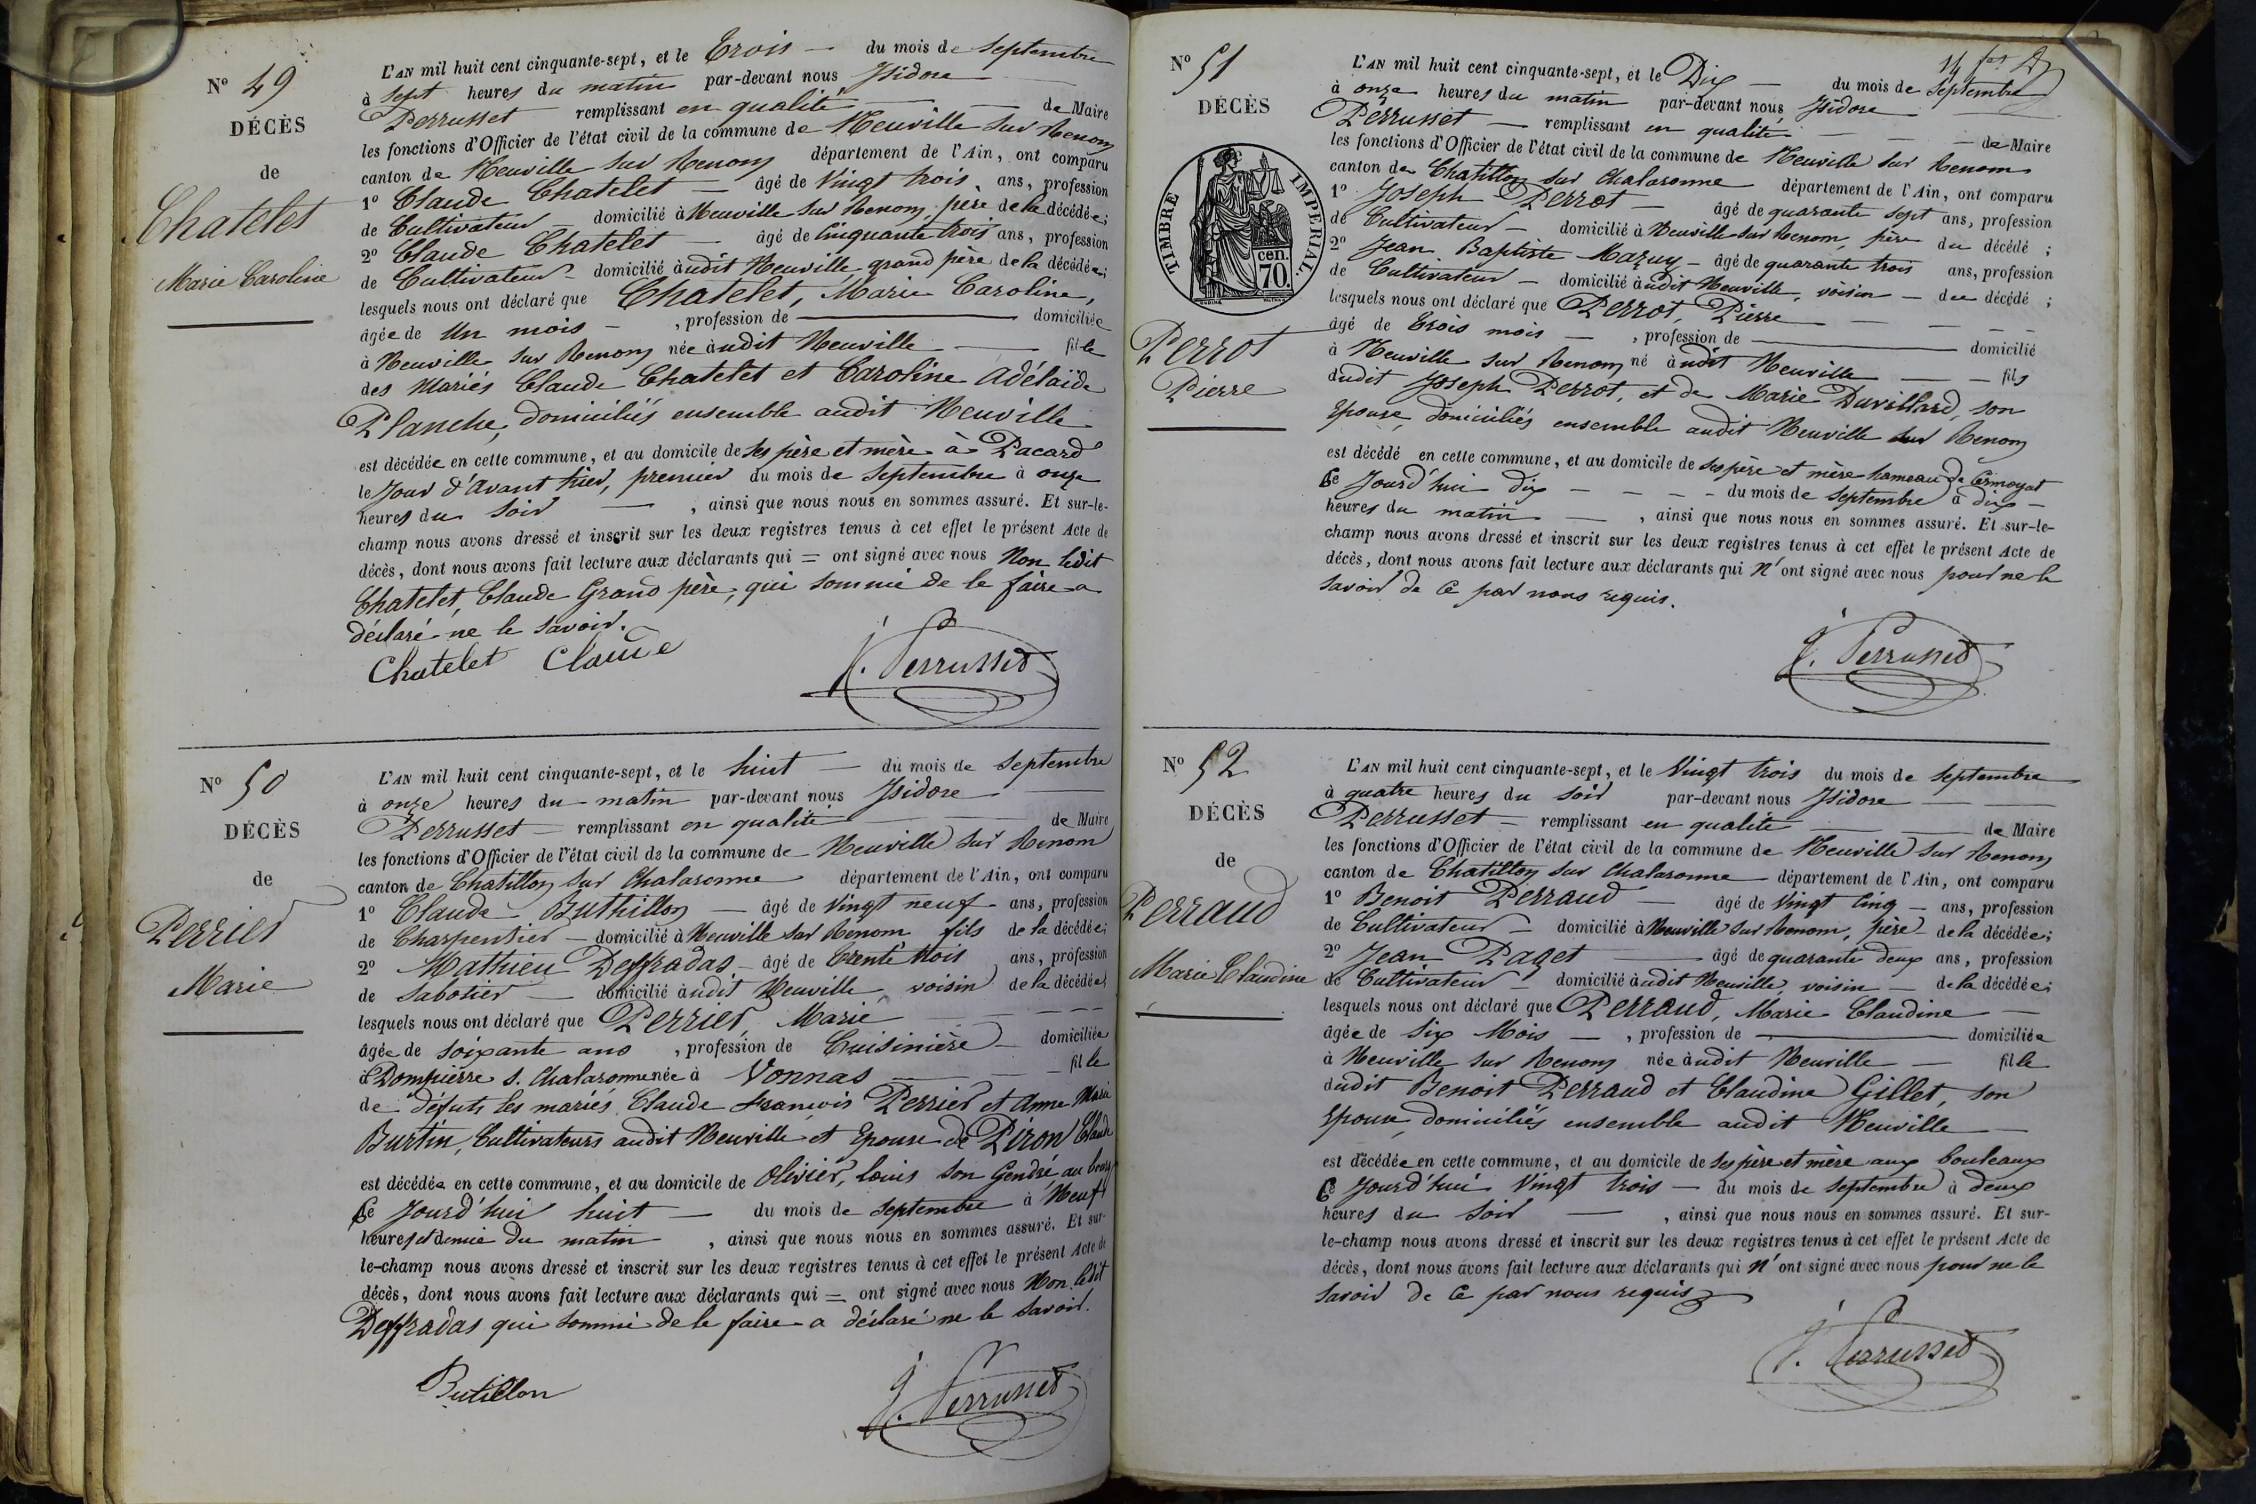 N° 49
DÉCÈS
de
Chatelet
Marie Caroline
L'AN mil huit cent cinquante-sept, et le Trois — du mois de Septembre
à Sept heures du matin par-devant nous Isidore
Perrusset remplissant en qualité — de Maire
les fonctions d'Officier de l'état civil de la commune de Neuville sur Renom
canton de Neuville sur Renom département de l'Ain, ont comparu
1° Claude Chatelet — âgé de Vingt trois ans, profession
de Cultivateur domicilié à Neuville sur Renom, père de la décédée;
2° Claude Chatelet — âgé de Cinquante trois ans, profession
de Cultivateur — domicilié àudit Neuville grand père de la décédée;
lesquels nous ont déclaré que Chatelet, Marie Caroline,
âgée de Un mois — , profession de — domiciliée
à Neuville sur Renom née àudit Neuville — fille
des Mariés Claude Chatelet et Caroline Adélaïde
Planche, domiciliés ensemble audit Neuville
est décédée en cette commune, et au domicile de ses père et mère à Pacard
le Jour d'avant hier, premier du mois de Septembre à onze
heures du soir — , ainsi que nous nous en sommes assuré. Et sur-le-
champ nous avons dressé et inscrit sur les deux registres tenus à cet effet le présent Acte de
décès, dont nous avons fait lecture aux déclarants qui = ont signé avec nous Non ledit
Chatelet, Claude Grand père, qui sommé de le faire a
déclaré ne le savoir.
Chatelet Claude
J. Perrusset
N° 50
DÉCÈS
de
Perrier
Marie
L'AN mil huit cent cinquante-sept, et le huit — du mois de Septembre
à onze heures du matin par-devant nous Isidore —
Perrusset — remplissant en qualité — de Maire
les fonctions d'Officier de l'état civil de la commune de Neuville sur Renom
canton de Chatillon sur Chalaronne département de l'Ain, ont comparu
1° Claude Buthillon — âgé de Vingt neuf ans, profession
de Charpentier — domicilié à Neuville sur Renom fils de la décédée;
2° Mathieu Deffradas — âgé de Trente trois ans, profession
de Sabotier — domicilié àudit Neuville, voisin de la décédée;
lesquels nous ont déclaré que Perrier, Marie — — —
âgée de soixante ans , profession de Cuisinière — domiciliée
à Dompierre s. Chalaronne née à Vonnas — fille
de défunts les mariés Claude François Perrier et Anne Marie
Burtin, Cultivateurs audit Neuville et Epouse de Piron Claude
est décédée en cette commune, et au domicile de Olivier, Louis son Gendre au bourg
Ce Jourd'hui huit — du mois de Septembre à Neuf
heures et demie du matin , ainsi que nous nous en sommes assuré. Et sur-
le-champ nous avons dressé et inscrit sur les deux registres tenus à cet effet le présent Acte de
décès, dont nous avons fait lecture aux déclarants qui = ont signé avec nous Non ledit
Deffradas qui sommé de le faire a déclaré ne le savoir.
Butillon
J. Perrusset
N° 51
DÉCÈS
TIMBRE IMPERIAL.
cen.
70.
Perrot
Pierre
L'AN mil huit cent cinquante-sept, et le Dix — du mois de Septembre
à onze heures du matin par-devant nous Isidore —
Perrusset — remplissant en qualité — — de Maire
les fonctions d'Officier de l'état civil de la commune de Neuville sur Renom
canton de Chatillon sur Chalaronne département de l'Ain, ont comparu
1° Joseph Perrot — âgé de quarante sept ans, profession
de Cultivateur — domicilié à Neuville sur Renom, père du décédé ;
2° Jean Baptiste Mazuy — âgé de quarante trois ans, profession
de Cultivateur — domicilié àudit Neuville, voisin — du décédé ;
lesquels nous ont déclaré que Perrot, Pierre — — —
âgé de Trois mois — , profession de — domicilié
à Neuville sur Renom né àudit Neuville — — fils
dudit Joseph Perrot, et de Marie Duvillard, son
Epouse, domiciliés ensemble audit Neuville sur Renom
est décédé en cette commune, et au domicile de ses père et mère hameau de Cermoyat
Ce Jourd'hui dix — — — du mois de Septembre à dix —
heures du matin — , ainsi que nous nous en sommes assuré. Et sur-le-
champ nous avons dressé et inscrit sur les deux registres tenus à cet effet le présent Acte de
décès, dont nous avons fait lecture aux déclarants qui n'ont signé avec nous pour ne le
savoir de ce par nous requis.
J. Perrusset
N° 52
DÉCÈS
de
Perraud
Marie Claudine
L'AN mil huit cent cinquante-sept, et le Vingt trois du mois de Septembre
à quatre heures du soir par-devant nous Isidore —
Perrusset — remplissant en qualité — de Maire
les fonctions d'Officier de l'état civil de la commune de Neuville sur Renom
canton de Chatillon sur Chalaronne département de l'Ain, ont comparu
1° Benoit Perraud — âgé de Vingt Cinq — ans, profession
de Cultivateur — domicilié à Neuville sur Renom, père de la décédée;
2° Jean Paget — âgé de quarante deux ans, profession
de Cultivateur — domicilié àudit Neuville, voisin — de la décédée;
lesquels nous ont déclaré que Perraud, Marie Claudine —
âgée de Six Mois — , profession de — domiciliée
à Neuville sur Renom née àudit Neuville — fille
dudit Benoit Perraud et Claudine Gillet, son
Epouse, domiciliés ensemble audit Neuville —
est décédée en cette commune, et au domicile de ses père et mère aux bouleaux
Ce Jourd'hui Vingt trois — du mois de Septembre à deux
heures du soir — , ainsi que nous nous en sommes assuré. Et sur-
le-champ nous avons dressé et inscrit sur les deux registres tenus à cet effet le présent Acte de
décès, dont nous avons fait lecture aux déclarants qui n'ont signé avec nous pour ne le
savoir de ce par nous requis
J. Perrusset